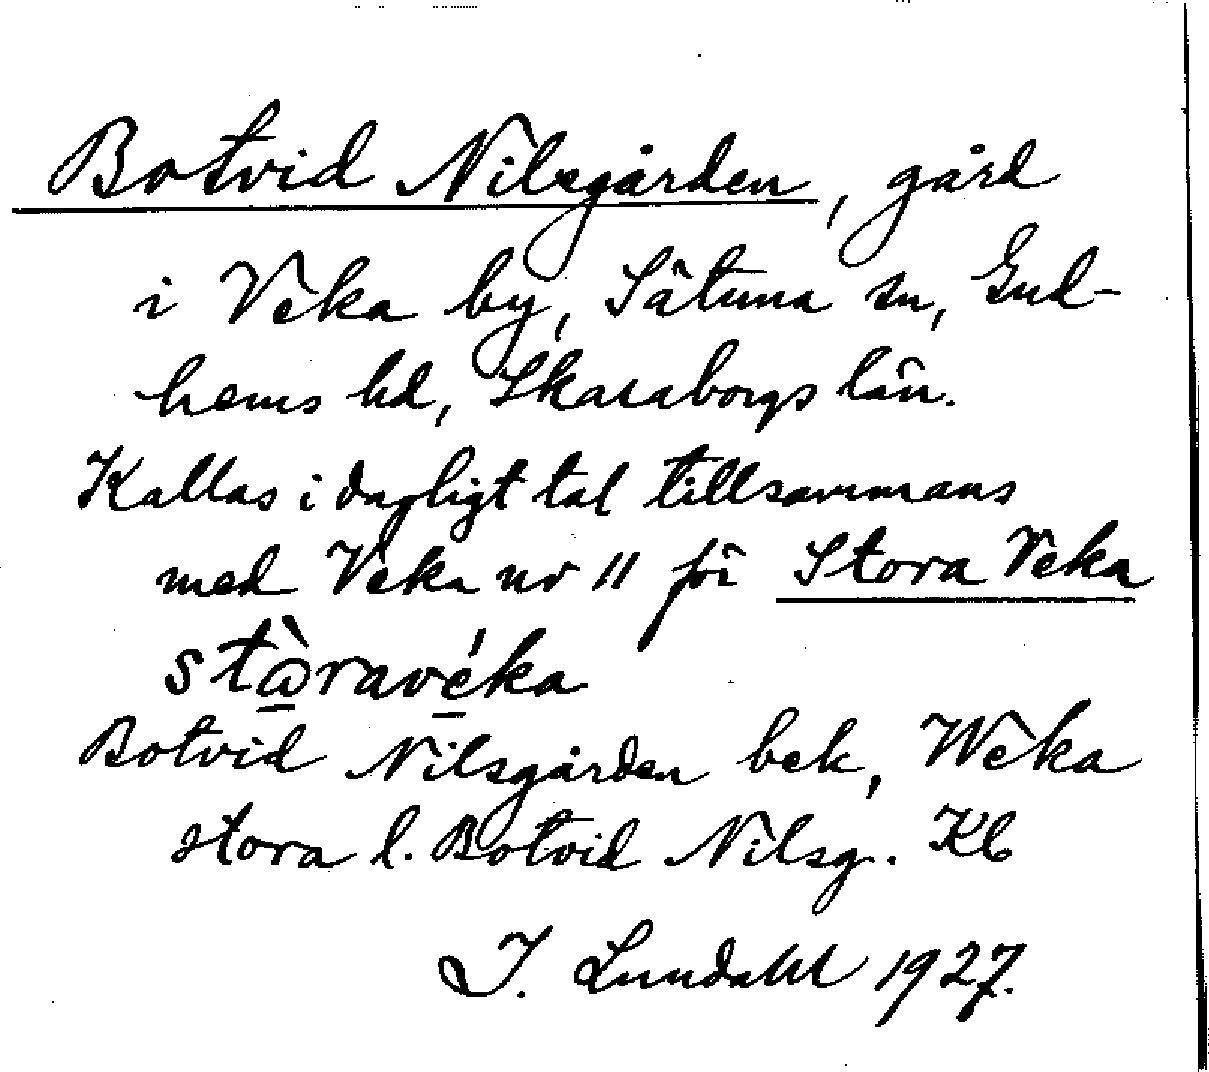 Botvid Nilsgården, gård
i Veka by, Sätuna sn, Gud-
hems hd, Skaraborgs län.
Kallas i dagligt tal tillsammans
med Veka nr 11 för Stora Veka
stὼravéka
Botvid Nilsgården bek, Weka
stora l. Botvid Nilsg. Kb
I. Lundahl 1927.